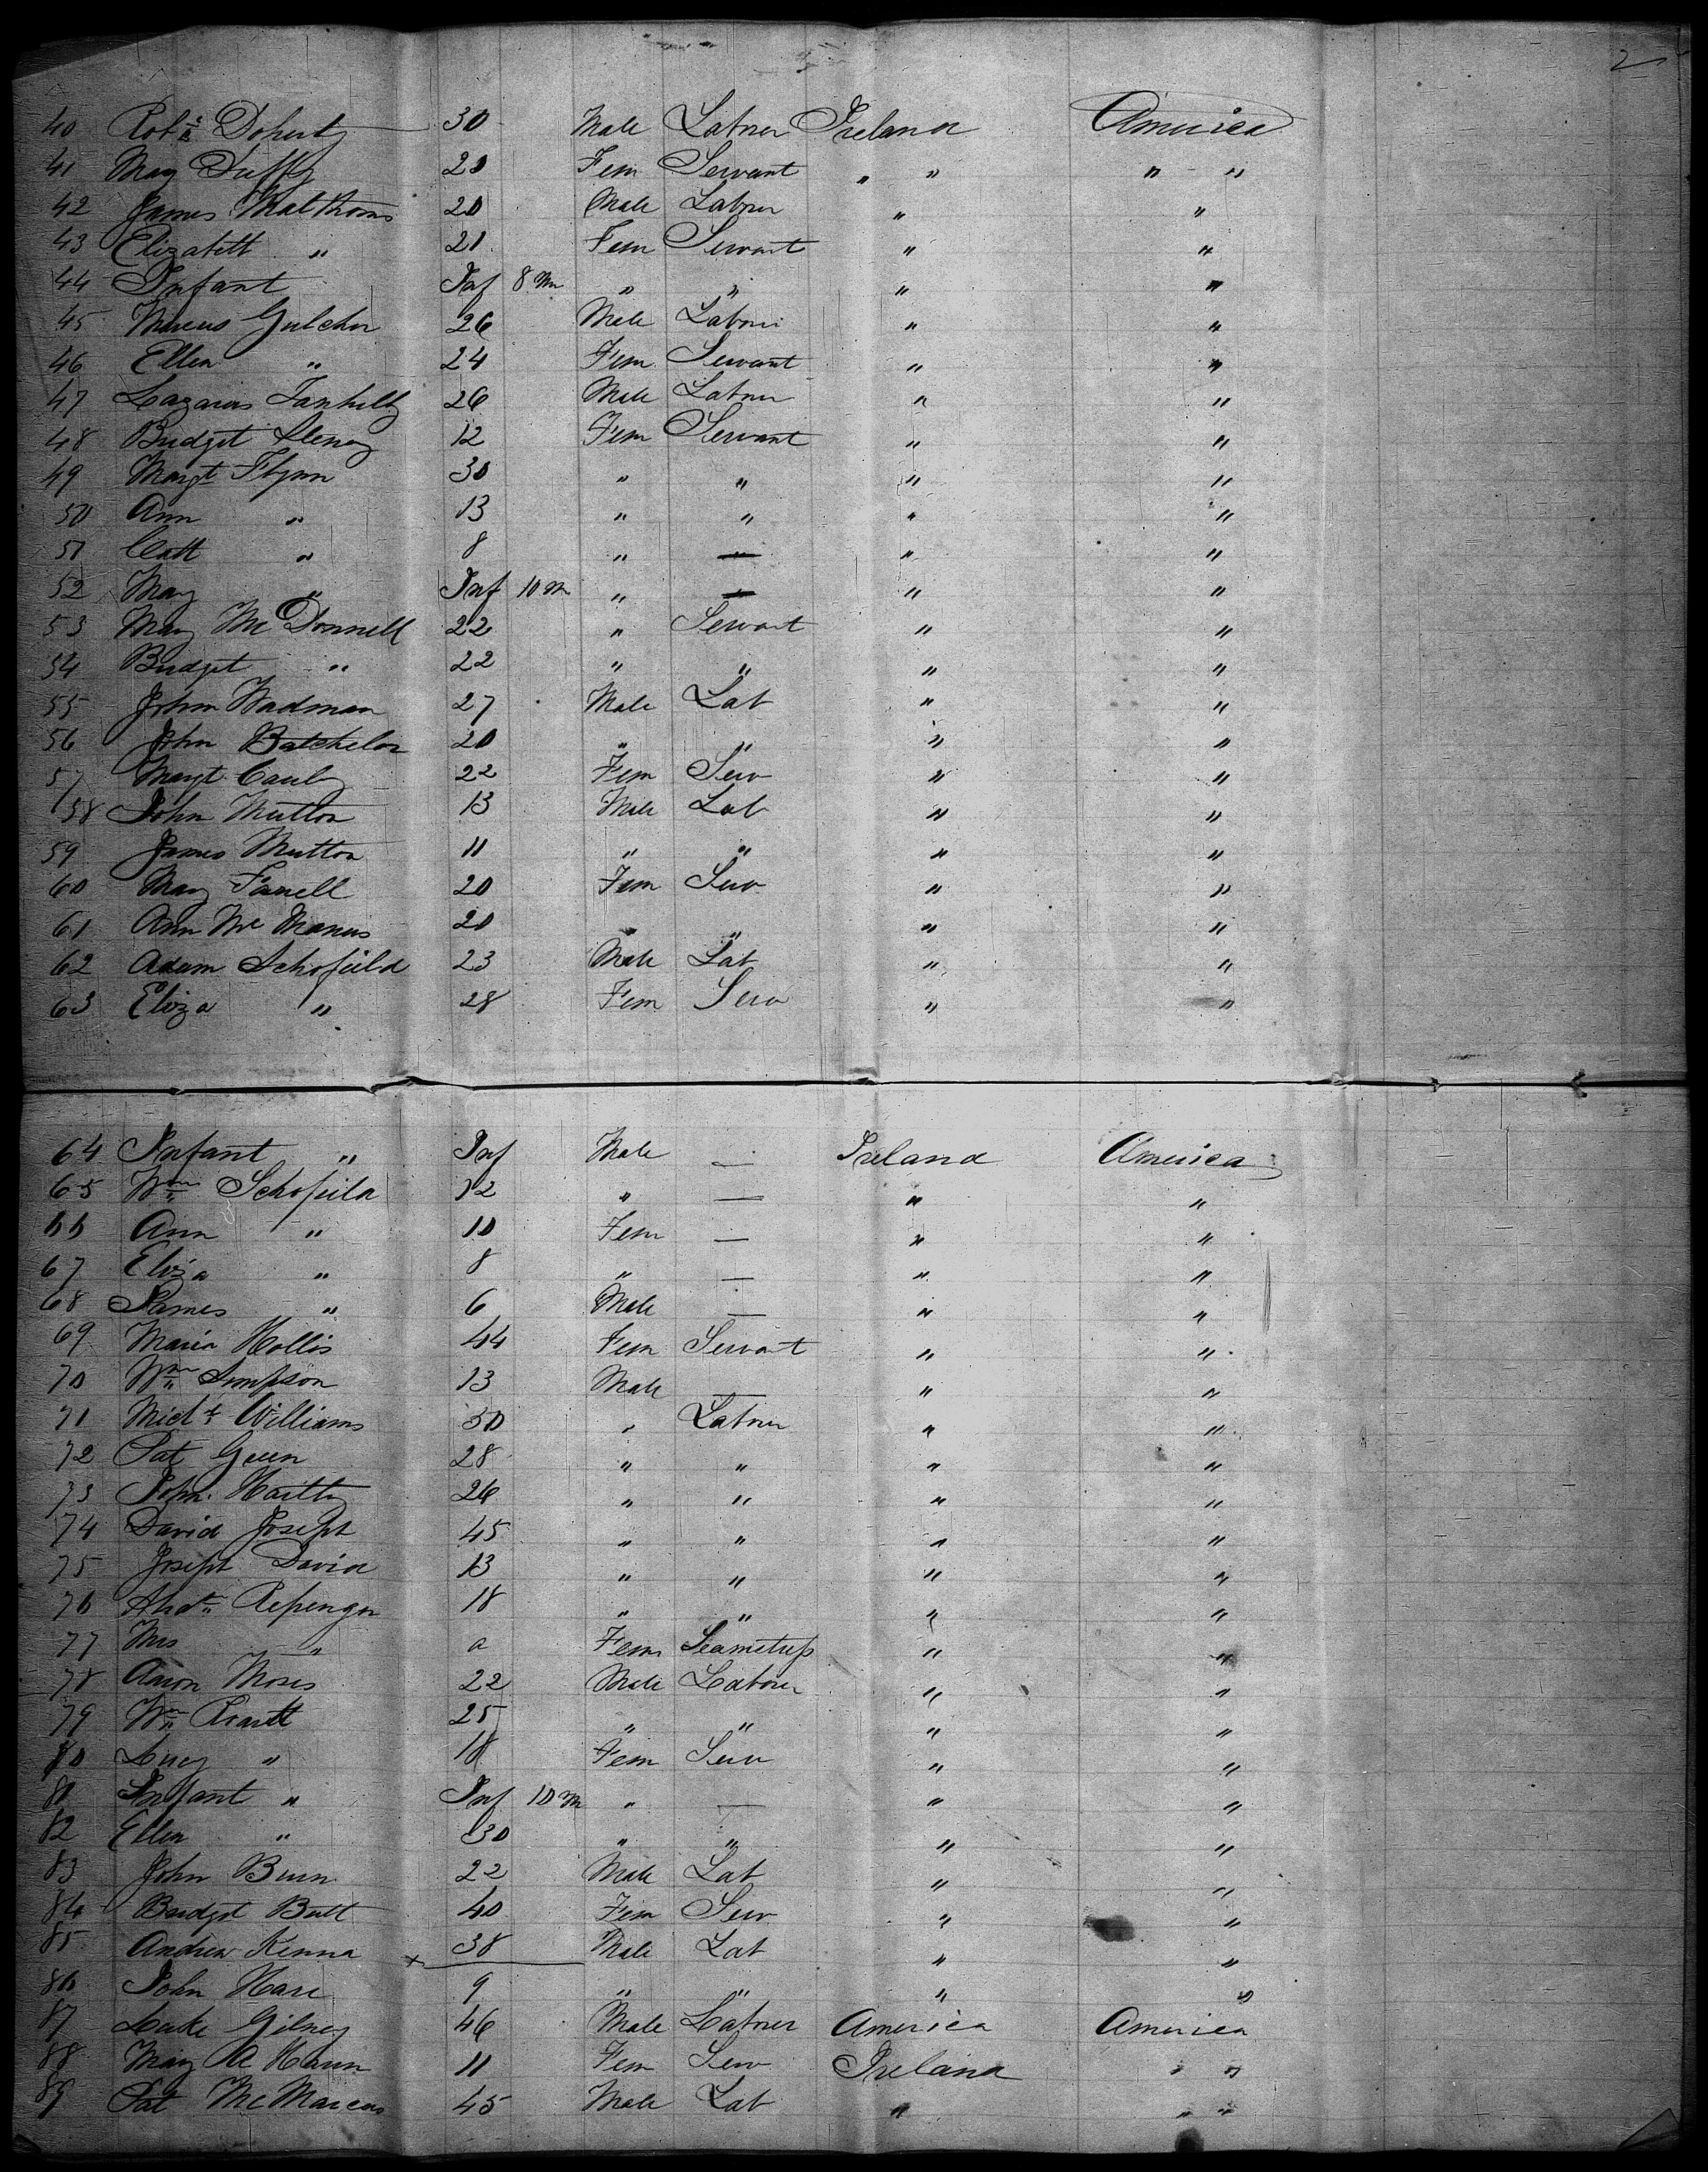 2
40 Robt Doherty 30 Male Labrer Ireland America
41 Mary Duffy 20 Fem Servant " " " "
42 James Malthoms 20 Male Labrer " "
43 Elizabeth " 21 Fem Servant " "
44 Infant Inf 8 m " " " "
45 Gulcher 26 Male Labrer " "
46 Ellen " 24 Fem Servant " "
47 Lazarus 26 Male Labrer " "
48 Bridget 12 Fem Servant " "
49 Margt Flynn 30 " " " "
50 Ann " 13 " " " "
51 Cath " 8 " — " "
52 Mary " Inf 10 m " — " "
53 Mary McDonnell 22 " Servant " "
54 Bridget " 22 " " " "
55 John Wadman 27 Male Lab " "
56 John Batchelor 20 " " " "
57 Margt Cauly 22 Fem Serv " "
58 John Mutton 13 Male Lab " "
59 James Mutton 11 " " " "
60 Mary Farrell 20 Fem Serv " "
61 Ann McManus 20 " " " "
62 Adam Schofield 23 Male Lab " "
63 Eliza " 28 Fem Serv " "
64 Infant " Inf Male — Ireland America
65 Wm Schofield 12 " — " "
66 Ann " 10 Fem — " "
67 Eliza " 8 " — " "
68 James " 6 Male — " "
69 Maria Hollis 44 Fem Servant " "
70 Wm Simpson 13 Male — " "
71 Michl Williams 30 " Labrer " "
72 Pat Green 28 " " " "
73 John 26 " " " "
74 David Joseph 45 " " " "
75 Joseph David 13 " " " "
76 18 " " " "
77 Mrs " a Fem Seamstress " "
78 Aaron Moses 22 Male Laborer " "
79 Wm 25 " " " "
80 Lucy " 18 Fem Serv " "
81 Infant " Inf 10 m " — " "
82 Ellen " 30 " " " "
83 John Burn 22 Male Lab " "
84 Bridget Butt 40 Fem Serv " "
85 Andrew Kenna x 38 Male Lab " "
86 John Hare 9 " " " "
87 Luke Gilney 46 Male Labrer America America
88 Mary A Hann 11 Fem Serv Ireland " "
89 Pat McMarcus 45 Male Lab " " "